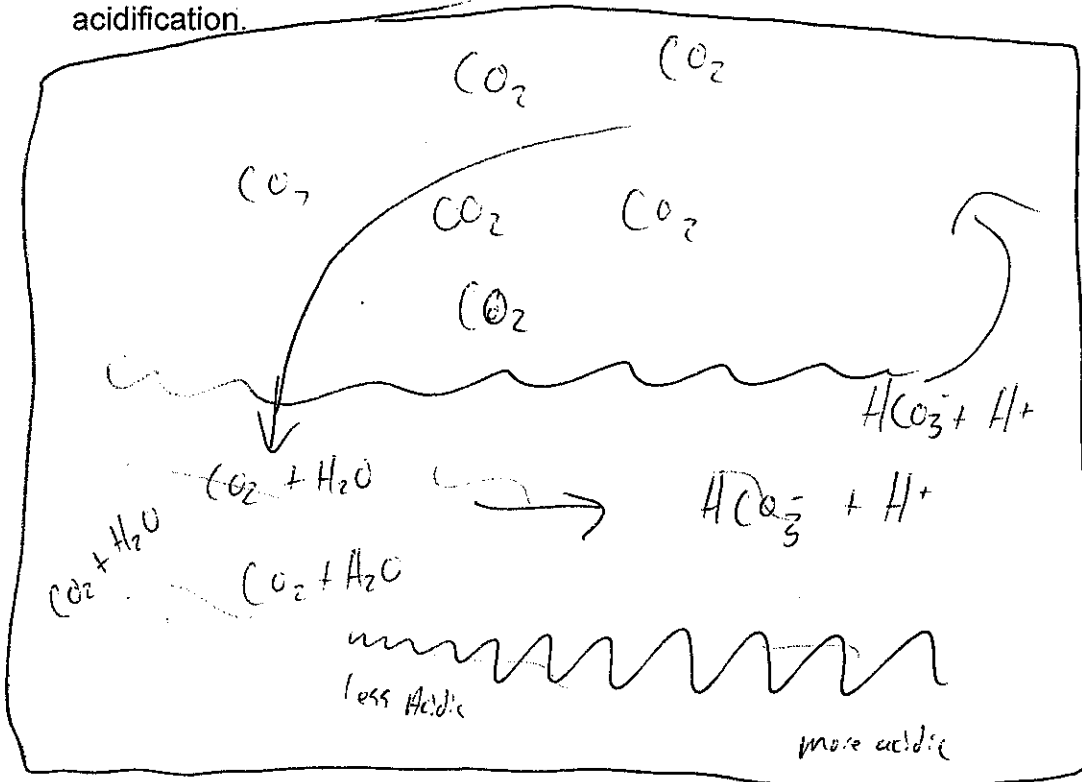 acidification.
CO₂ CO₂
CO₂ CO₂ CO₂
CO₂
HCO₃⁻ + H⁺
CO₂ + H₂O HCO₃⁻ + H⁺
CO₂ + H₂O
CO₂ + H₂O
less Acidic
more acidic